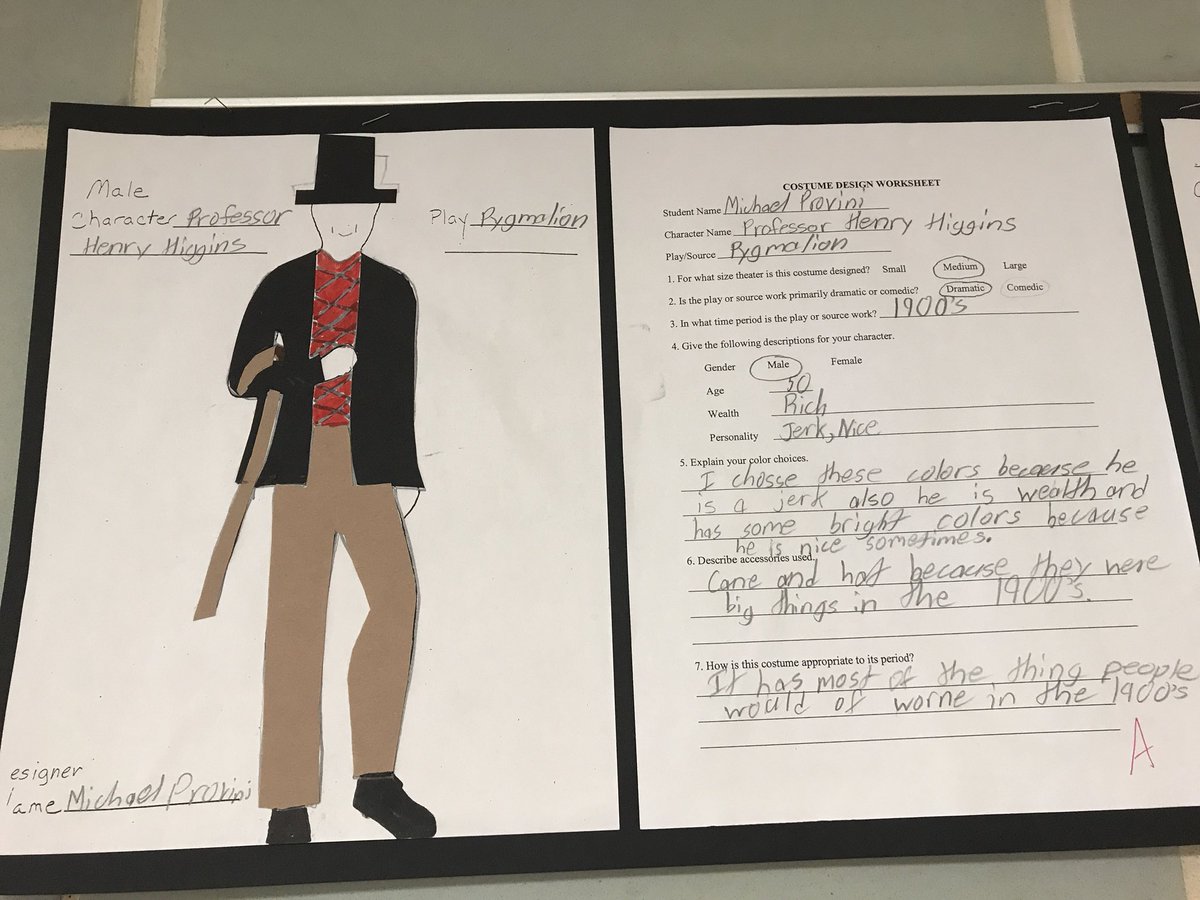 Male
Character Professor
Henry Higgins
Play Pygmalion
esigner
ame Michael Provini
COSTUME DESIGN WORKSHEET
Student Name Michael Provini
Character Name Professor Henry Higgins
Play/Source Pygmalion
1. For what size theater is this costume designed? Small Medium Large
2. Is the play or source work primarily dramatic or comedic? Dramatic Comedic
3. In what time period is the play or source work? 1900's
4. Give the following descriptions for your character.
Gender Male Female
Age 50
Wealth Rich
Personality Jerk, Nice
5. Explain your color choices.
I chosse these colors because he
is a jerk also he is wealth and
has some bright colors because
he is nice sometimes.
6. Describe accessories used.
Cane and hat because they were
big things in the 1900's.
7. How is this costume appropriate to its period?
It has most of the thing people
would of worne in the 1900's
A